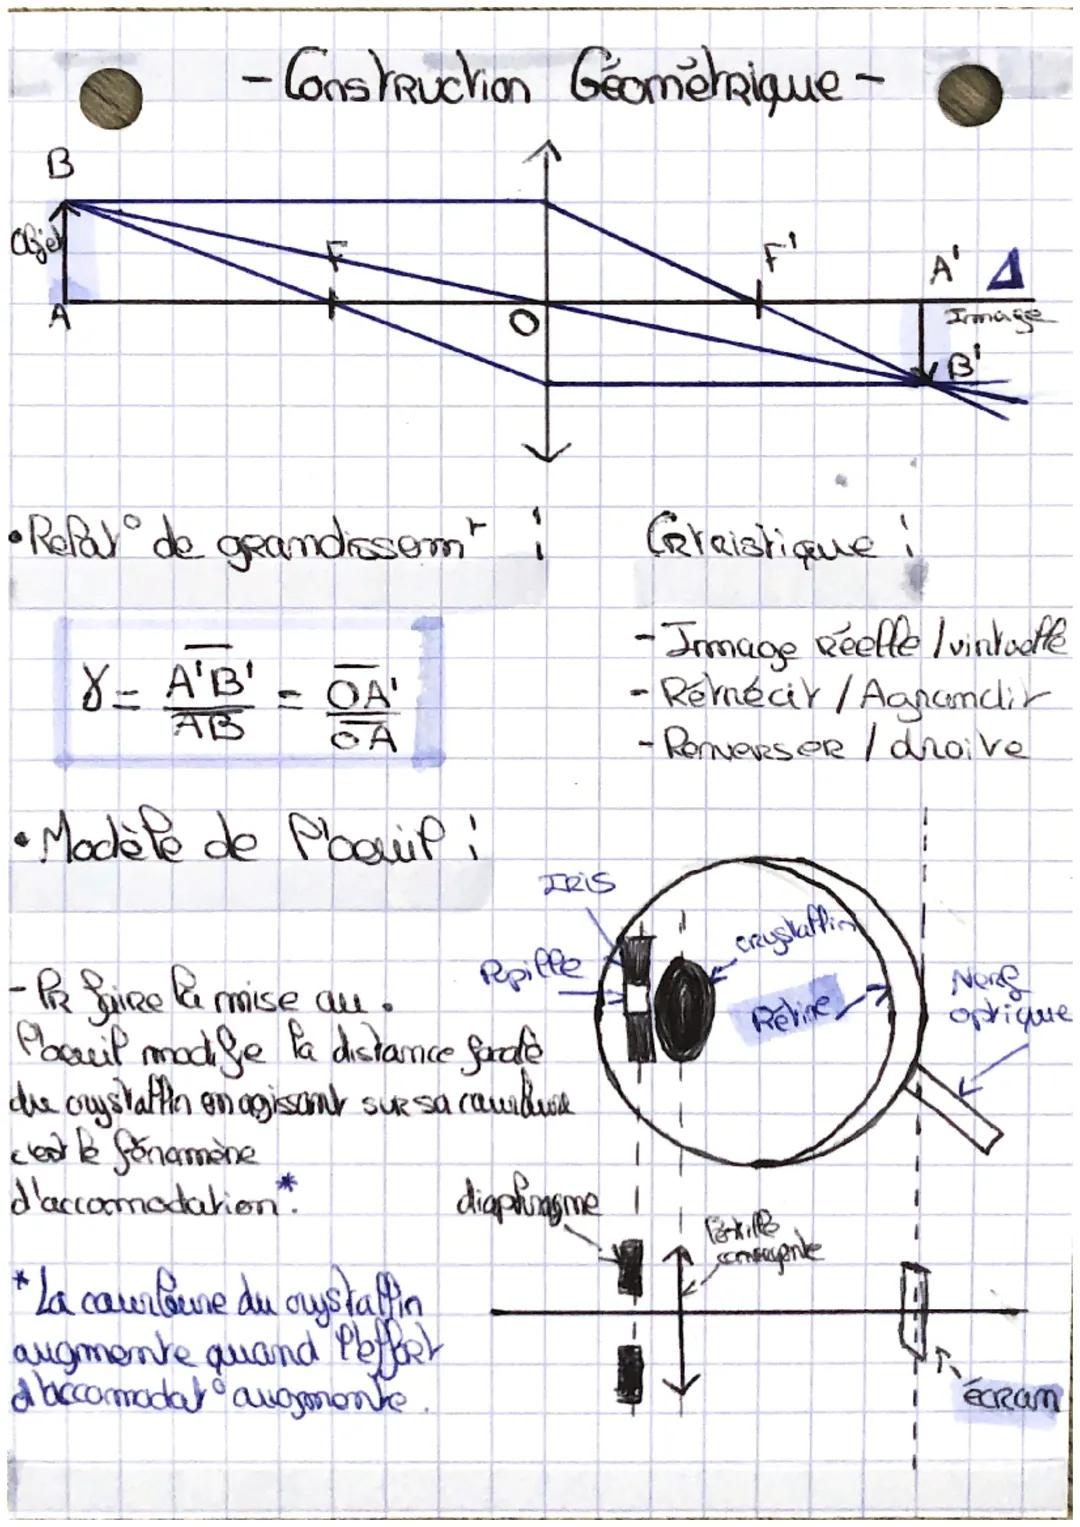 - Construction Géométrique -
B
Objet
F
F'
A'
Δ
A
O
Image
B'
• Relat° de grandissemt :
Crtéistique :
γ = A'B' / AB = OA' / OA
- Image réelle / virtuelle
- Rétrécit / Agrandit
- Renverser / droite
• Modèle de l'oeuil :
IRIS
crystallin
Pupille
Rétine
Nerf
optique
- Pr faire la mise au .
l'oeuil modifie la distance focale
du crystallin en agissant sur sa courbure
c'est le fénomène
d'accomodation*.
diaphragme
lentille
convergente
* La courbure du crystallin
augmente quand l'effort
d'accomodat° augmente.
écran